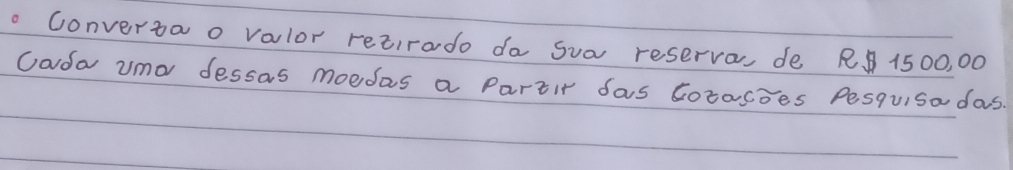 • Converta o valor retirado da sua reserva, de R$ 1500,00
Cada uma dessas moedas a Partir das Cotações Pesquisadas.